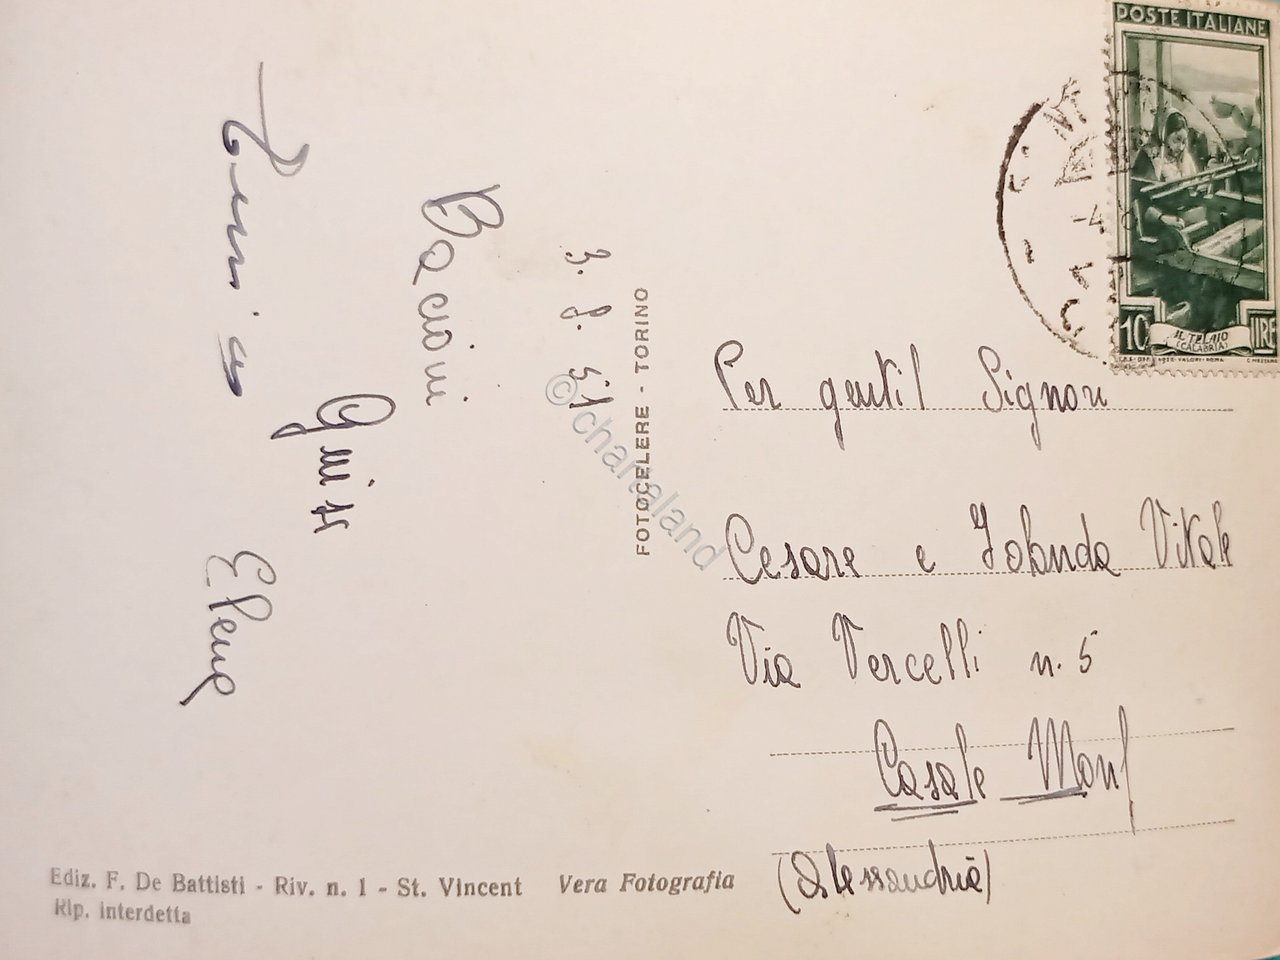 3. 8. 51
Bacioni
Elena
FOTOCELERE - TORINO
© chartaland
POSTE ITALIANE
10 LIRE
IL TELAIO
(CALABRIA)
Per gentil Signori
Cesare e Jolanda Vitale
Via Vercelli n. 5
Casale Monf
(Alessandria)
Ediz. F. De Battisti - Riv. n. 1 - St. Vincent Vera Fotografia
Rip. interdetta